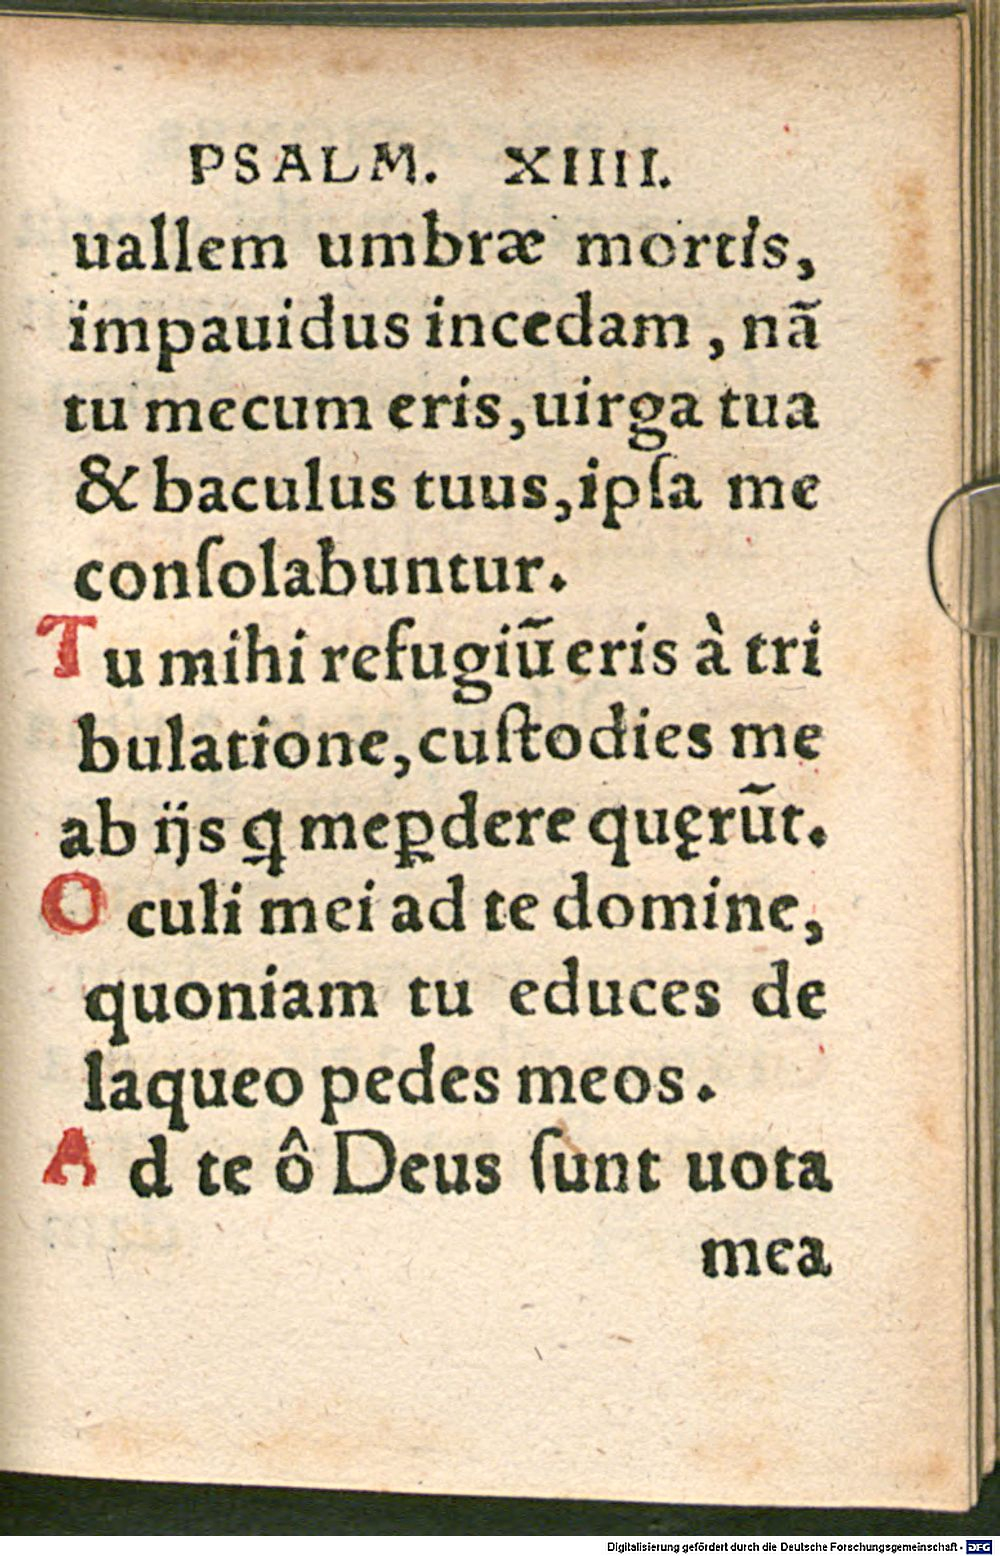 PSALM. XIIII.
uallem umbræ mortis,
impauidus incedam, nã
tu mecum eris, uirga tua
& baculus tuus, ipſa me
conſolabuntur.
Tu mihi refugiũ eris à tri
bulatione, cuſtodies me
ab ijs ꝗ me ꝑdere quęrũt.
Oculi mei ad te domine,
quoniam tu educes de
laqueo pedes meos.
Ad te ô Deus ſunt uota
mea
Digitalisierung gefördert durch die Deutsche Forschungsgemeinschaft - DFG